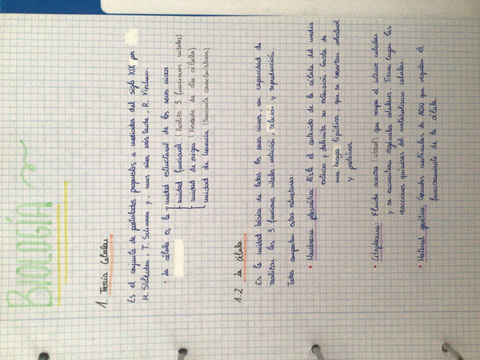 BIOLOGÍA
1. Teoría Celular
Es el conjunto de postulados propuestos a mediados del siglo XIX por
M. Shleiden, T. Schwann y, unos años más tarde, R. Virchow.
• La célula es la unidad estructural de los seres vivos
unidad funcional (realiza 3 funciones vitales)
unidad de origen (proviene de otra célula)
unidad de herencia (transmite características)
1.2 La célula
Es la unidad básica de todos los seres vivos, con capacidad de
realizar las 3 funciones vitales: nutrición, relación y reproducción.
Todas comparten estas estructuras:
• Membrana plasmática: Aísla el contenido de la célula del medio
externo y delimita su extensión. Consta de
una bicapa lipídica que se insertan colesterol
y proteínas.
• Citoplasma: Fluido acuoso que ocupa el interior celular
y se encuentran orgánulos celulares. Tienen lugar las
reacciones químicas del metabolismo celular.
• Material genético: Grandes moléculas de ADN que regulan el
funcionamiento de la célula.